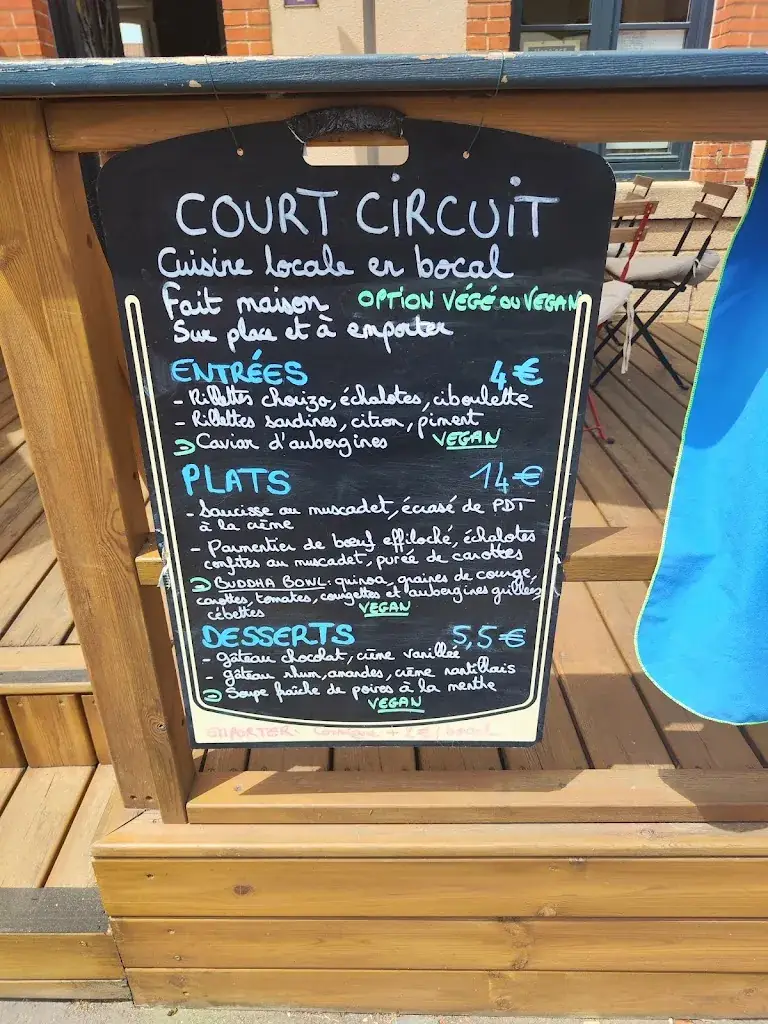 COURT CIRCUIT
Cuisine locale en bocal
Fait maison OPTION VÉGÉ OU VEGAN
Sur place et à emporter
ENTRÉES 4€
- Rillettes chorizo, échalotes, ciboulette
- Rillettes sardines, citron, piment
Caviar d'aubergines VEGAN
PLATS 14€
- Saucisse au muscadet, écrasé de PDT
à la crème
- Parmentier de bœuf effiloché, échalotes
confites au muscadet, purée de carottes
BUDDHA BOWL: quinoa, graines de courge,
carottes, tomates, courgettes et aubergines grillées,
cébettes VEGAN
DESSERTS 5,5€
- gâteau chocolat, crème vanillée
- gâteau rhum, amandes, crème nantillais
Soupe fraîche de poires à la menthe
VEGAN
EMPORTER: Consigne + 2€ / bocal